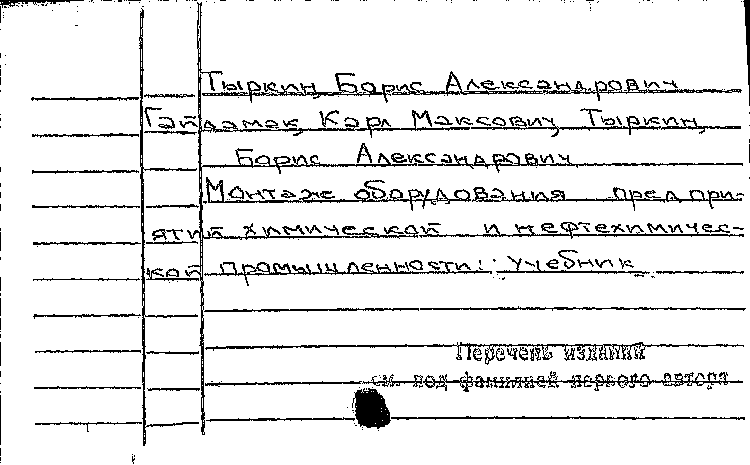 Тыркин, Борис Александрович
Гайдамак, Карл Максович, Тыркин,
Борис Александрович
Монтаж оборудования предпри-
ятий химической и нефтехимичес-
кой промышленности: Учебник
Перечень изданий
см. под фамилией первого автора